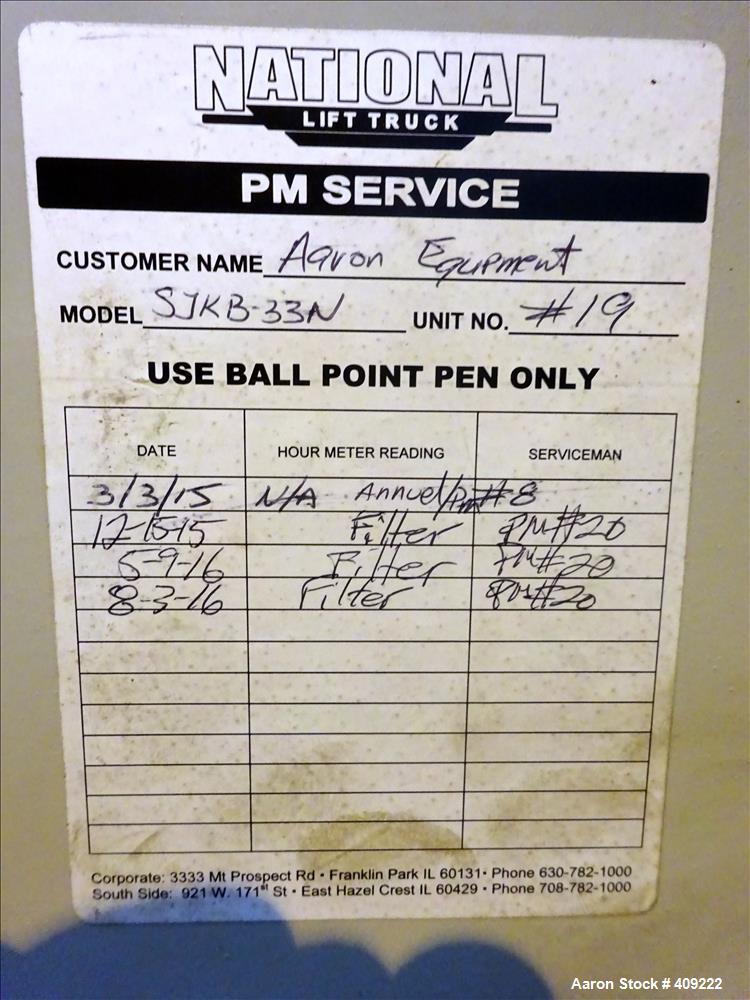 NATIONAL
LIFT TRUCK
PM SERVICE
CUSTOMER NAME Aaron Equipment
MODEL SJKB-33N UNIT NO. #19
USE BALL POINT PEN ONLY
DATE HOUR METER READING SERVICEMAN
3/3/15 N/A Annuel/Pm #8
12-15-15 Filter PM#20
5-9-16 Filter PM#20
8-3-16 Filter PM#20
Corporate: 3333 Mt Prospect Rd • Franklin Park IL 60131• Phone 630-782-1000
South Side: 921 W. 171st St • East Hazel Crest IL 60429 • Phone 708-782-1000
Aaron Stock # 409222